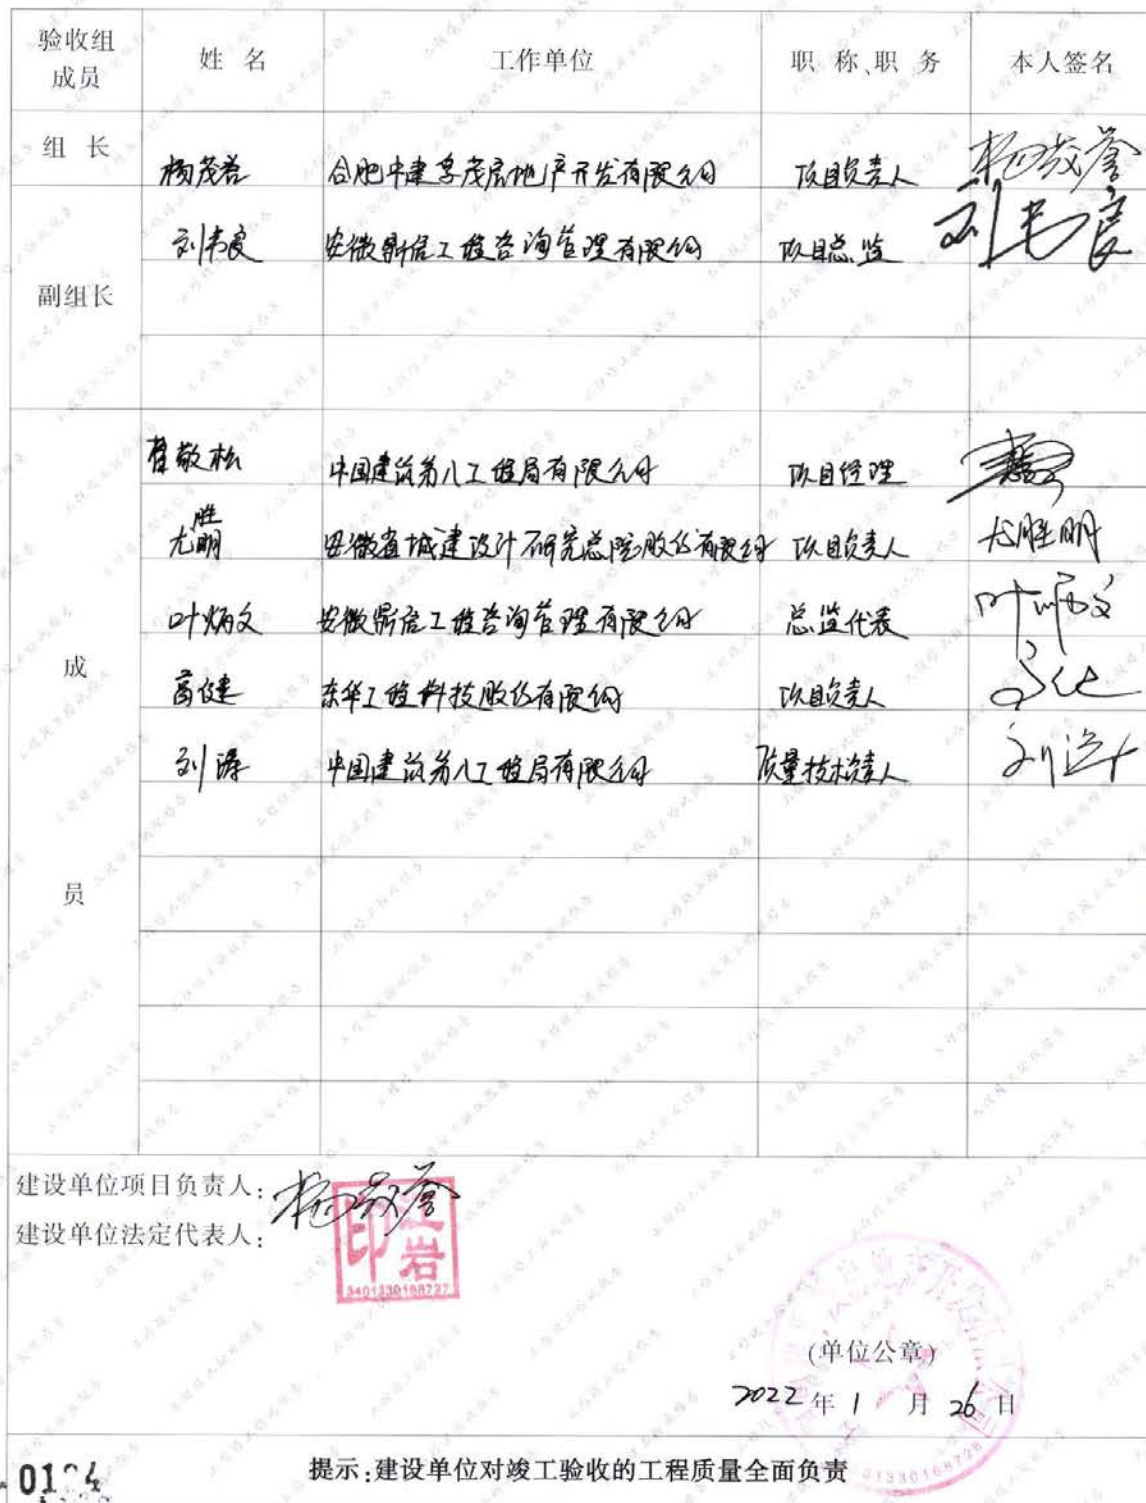 验收组成员 姓 名 工作单位 职 称、职 务 本人签名
组 长 杨茂誉 合肥中建孚茂房地产开发有限公司 项目负责人 杨茂誉
副组长 刘韦良 安徽鼎信工程咨询管理有限公司 项目总监 刘韦良
敬松 中国建筑第八工程局有限公司 项目经理
尤胜明 安徽省城建设计研究总院股份有限公司 项目负责人 尤胜明
叶炳文 安徽鼎信工程咨询管理有限公司 总监代表 叶炳文
成 高健 东华工程科技股份有限公司 项目负责人 高健
刘涛 中国建筑第八工程局有限公司 质量技术负责人 刘涛
员
建设单位项目负责人: 杨茂誉
建设单位法定代表人:
印 岩
3401330168727
(单位公章)
2022 年 1 月 26 日
提示:建设单位对竣工验收的工程质量全面负责